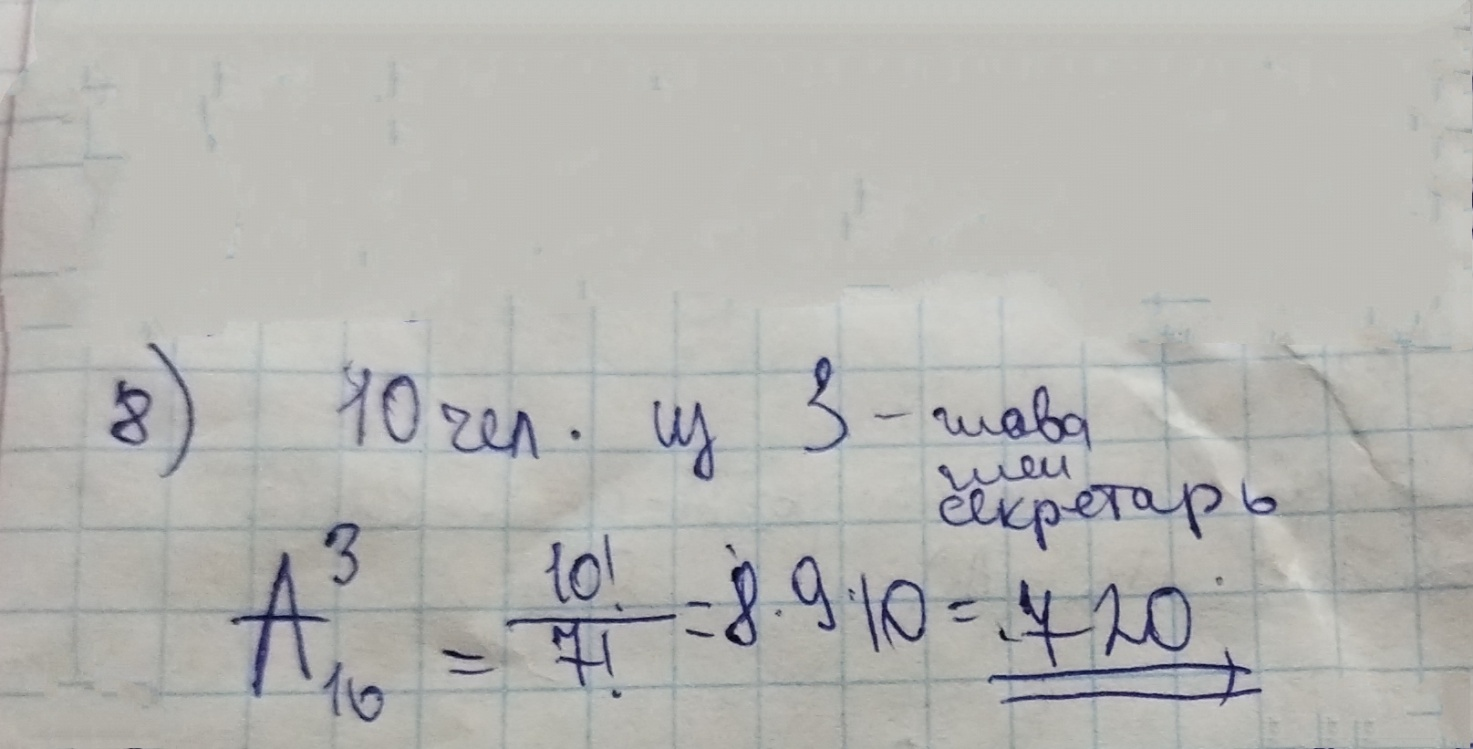 8) 10 чел. из 3 – глава
член
секретарь
A³₁₀ = 10!/7! = 8·9·10 = 720